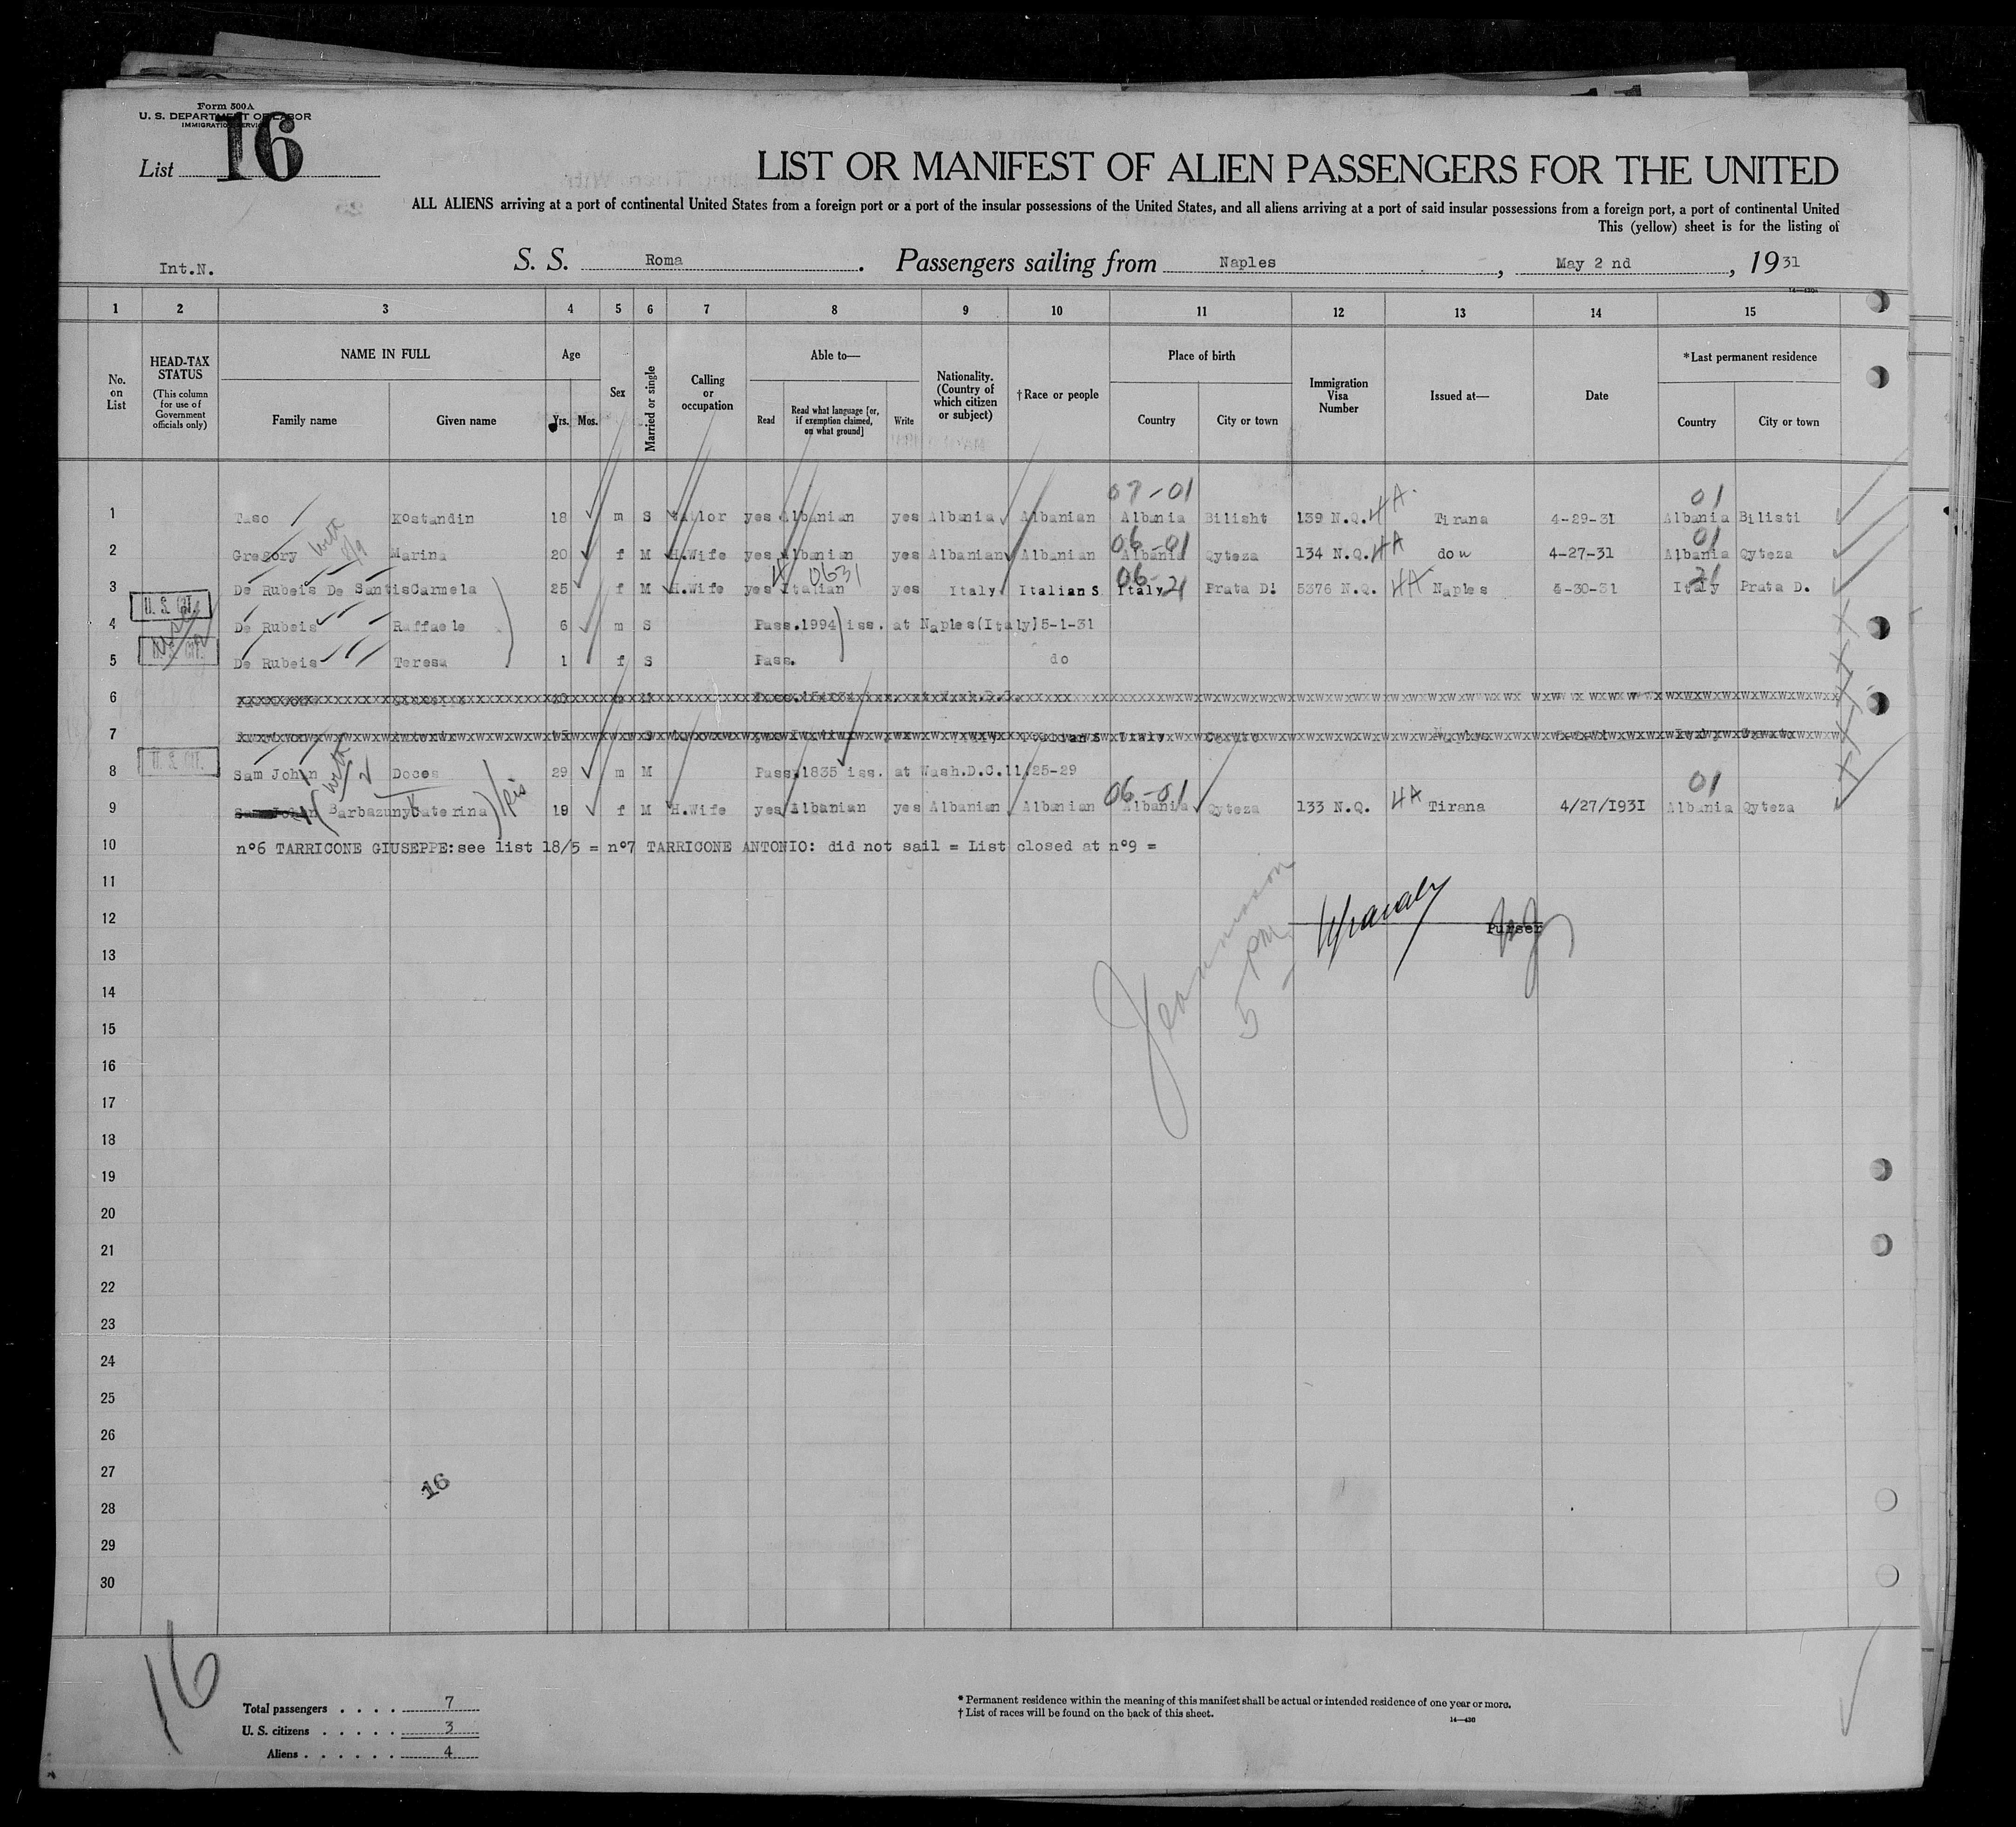 Form 500A
U. S. DEPARTMENT OF LABOR
IMMIGRATION SERVICE
List 16
LIST OR MANIFEST OF ALIEN PASSENGERS FOR THE UNITED
ALL ALIENS arriving at a port of continental United States from a foreign port or a port of the insular possessions of the United States, and all aliens arriving at a port of said insular possessions from a foreign port, a port of continental United
This (yellow) sheet is for the listing of
Int.N. S. S. Roma . Passengers sailing from Naples , May 2 nd , 1931
1 2 3 4 5 6 7 8 9 10 11 12 13 14 15
No. on List
HEAD-TAX STATUS (This column for use of Government officials only)
NAME IN FULL Family name Given name
Age Yrs. Mos.
Sex
Married or single
Calling or occupation
Able to— Read Read what language [or, if exemption claimed, on what ground] Write
Nationality. (Country of which citizen or subject)
†Race or people
Place of birth Country City or town
Immigration Visa Number
Issued at—
Date
*Last permanent residence Country City or town
07-01 01
1 Taso Kostandin 18 m S Tailor yes Albanian yes Albania Albanian Albania Bilisht 139 N.Q. 4A Tirana 4-29-31 Albania Bilisti
06-01 01
2 Gregory Marina 20 f M H.Wife yes Albanian yes Albanian Albanian Albania Qyteza 134 N.Q. 4A do 4-27-31 Albania Qyteza
0631 06-21 21
3 De Rubeis De Santis Carmela 25 f M H.Wife yes Italian yes Italy Italian S Italy Prata D! 5376 N.Q. 4A Naples 4-30-31 Italy Prata D.
U. S. CIT.
4 De Rubeis Raffaele 6 m S Pass.1994 iss. at Naples(Italy)5-1-31
U. S. CIT.
5 De Rubeis Teresa 1 f S Pass. do
6
7
U. S. CIT.
8 Sam John Doces 29 m M Pass.1835 iss. at Wash.D.C.11/25-29
06-01 01
9 Sam John (Barbazuny Caterina) 19 f M H.Wife yes Albanian yes Albanian Albanian Albania Qyteza 133 N.Q. 4A Tirana 4/27/1931 Albania Qyteza
10 nº6 TARRICONE GIUSEPPE: see list 18/5 = nº7 TARRICONE ANTONIO: did not sail = List closed at nº9 =
11
12
Purser
13
5 PM
14
15
16
17
18
19
20
21
22
23
24
25
26
27
16
28
29
30
16
Total passengers . . . . 7
U. S. citizens . . . . . 3
Aliens . . . . . . 4
* Permanent residence within the meaning of this manifest shall be actual or intended residence of one year or more.
† List of races will be found on the back of this sheet.
14—430